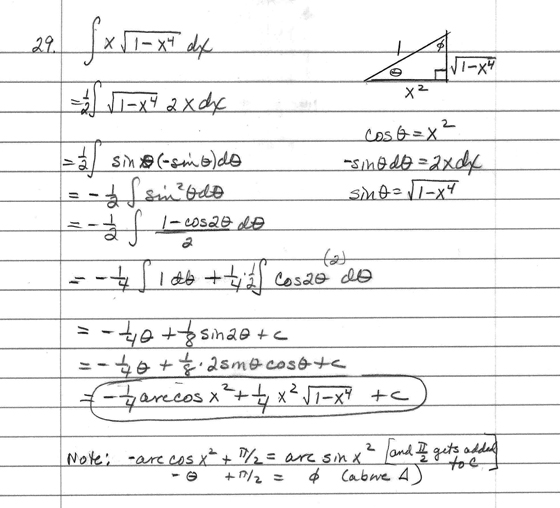 29. ∫ x √(1-x⁴) dx
= ½∫ √(1-x⁴) 2x dx
1 φ θ √(1-x⁴) x²
cos θ = x²
= ½∫ sin θ (-sin θ) dθ
-sin θ dθ = 2x dx
= -½ ∫ sin²θ dθ
sin θ = √(1-x⁴)
= -½ ∫ (1-cos2θ)/2 dθ
= -¼ ∫ 1 dθ + ¼·½∫ cos2θ (2) dθ
= -¼θ + ⅛ sin2θ + c
= -¼θ + ⅛·2sinθ cosθ + c
= -¼ arccos x² + ¼ x² √(1-x⁴) + c
Note: -arc cos x² + π/2 = arc sin x² [and π/2 gets added to c]
-θ + π/2 = φ (above Δ)